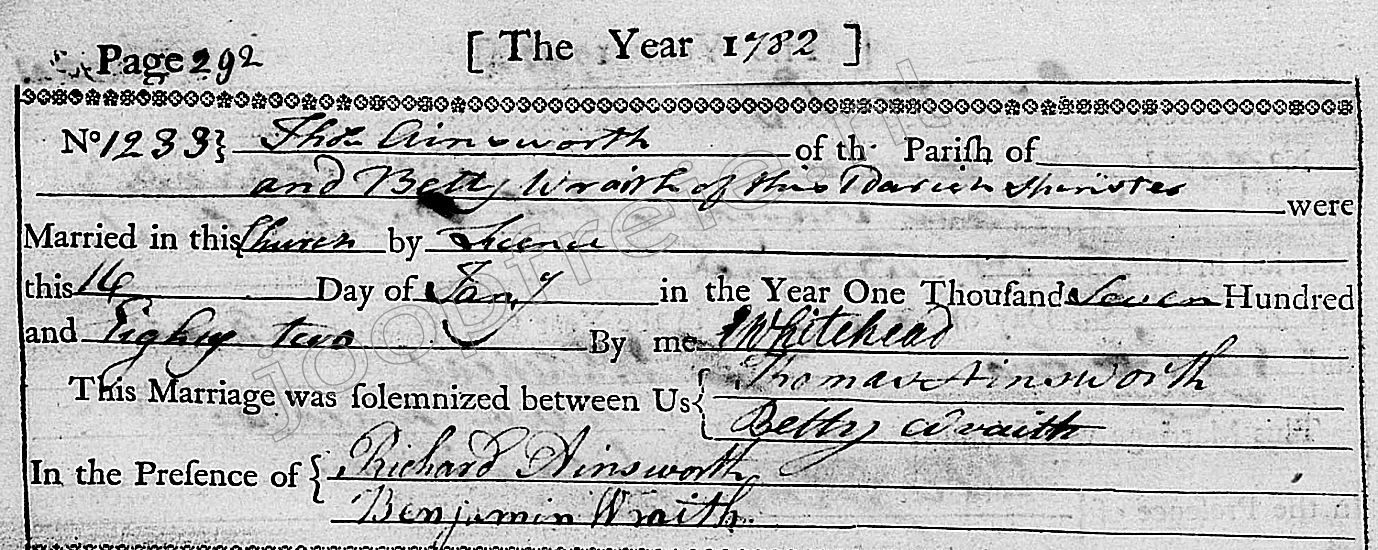 Page 292 [ The Year 1782 ]
No 1233} Tho.s Ainsworth of th. Pariſh of
and Betty Wraith of this Parish Spinster were
Married in this Church by Licence
this 14 Day of Jan.y in the Year One Thouſand Seven Hundred
and Eighty two By me Whitehead
This Marriage was ſolemnized between Us { Thomas Ainsworth
Betty Wraith
In the Preſence of { Richard Ainsworth
Benjamin Wraith